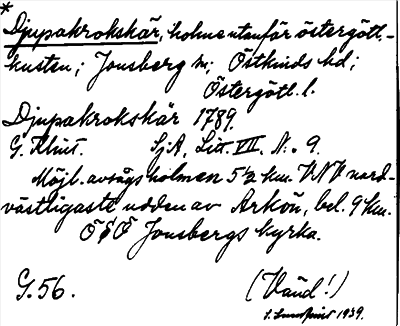 *
Djupakrokskär, holme utanför östergötl.-
kusten; Jonsberg sn; Östkinds hd;
Östergötl. l.
Djupakrokskär 1789.
G. Klint. SjA, Litt. VII. N:o 9.
Möjl. avsågs holmen 5½ km. VNV nord-
västligaste udden av Arkön, bel. 9 km.
ÖSÖ Jonsbergs kyrka.
G. 56. (Vänd!)
1939.